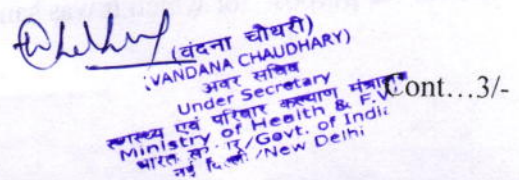 (वंदना चौधरी)
(VANDANA CHAUDHARY)
अवर सचिव
Under Secretary
स्वास्थ्य एवं परिवार कल्याण मंत्रालय
Ministry of Health & F.W.
भारत सरकार/Govt. of India
नई दिल्ली/New Delhi
Cont...3/-